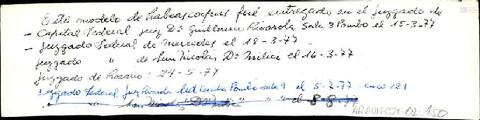 Este modelo de habeas corpus fué entregado en el juzgado de
– Capital Federal juez Dr Guillermo Rivarola Sala 3 Pombo el 15-3-77
– Juzgado Federal de Mercedes el 18-3-77-
juzgado " de San Nicolas Dr Milici el 16-3-77
juzgado de Rosario: 24-5-77
Juzgado Federal juez Pombo sala 9 el 5-7-77 - 121
" " San " el 8-8-77